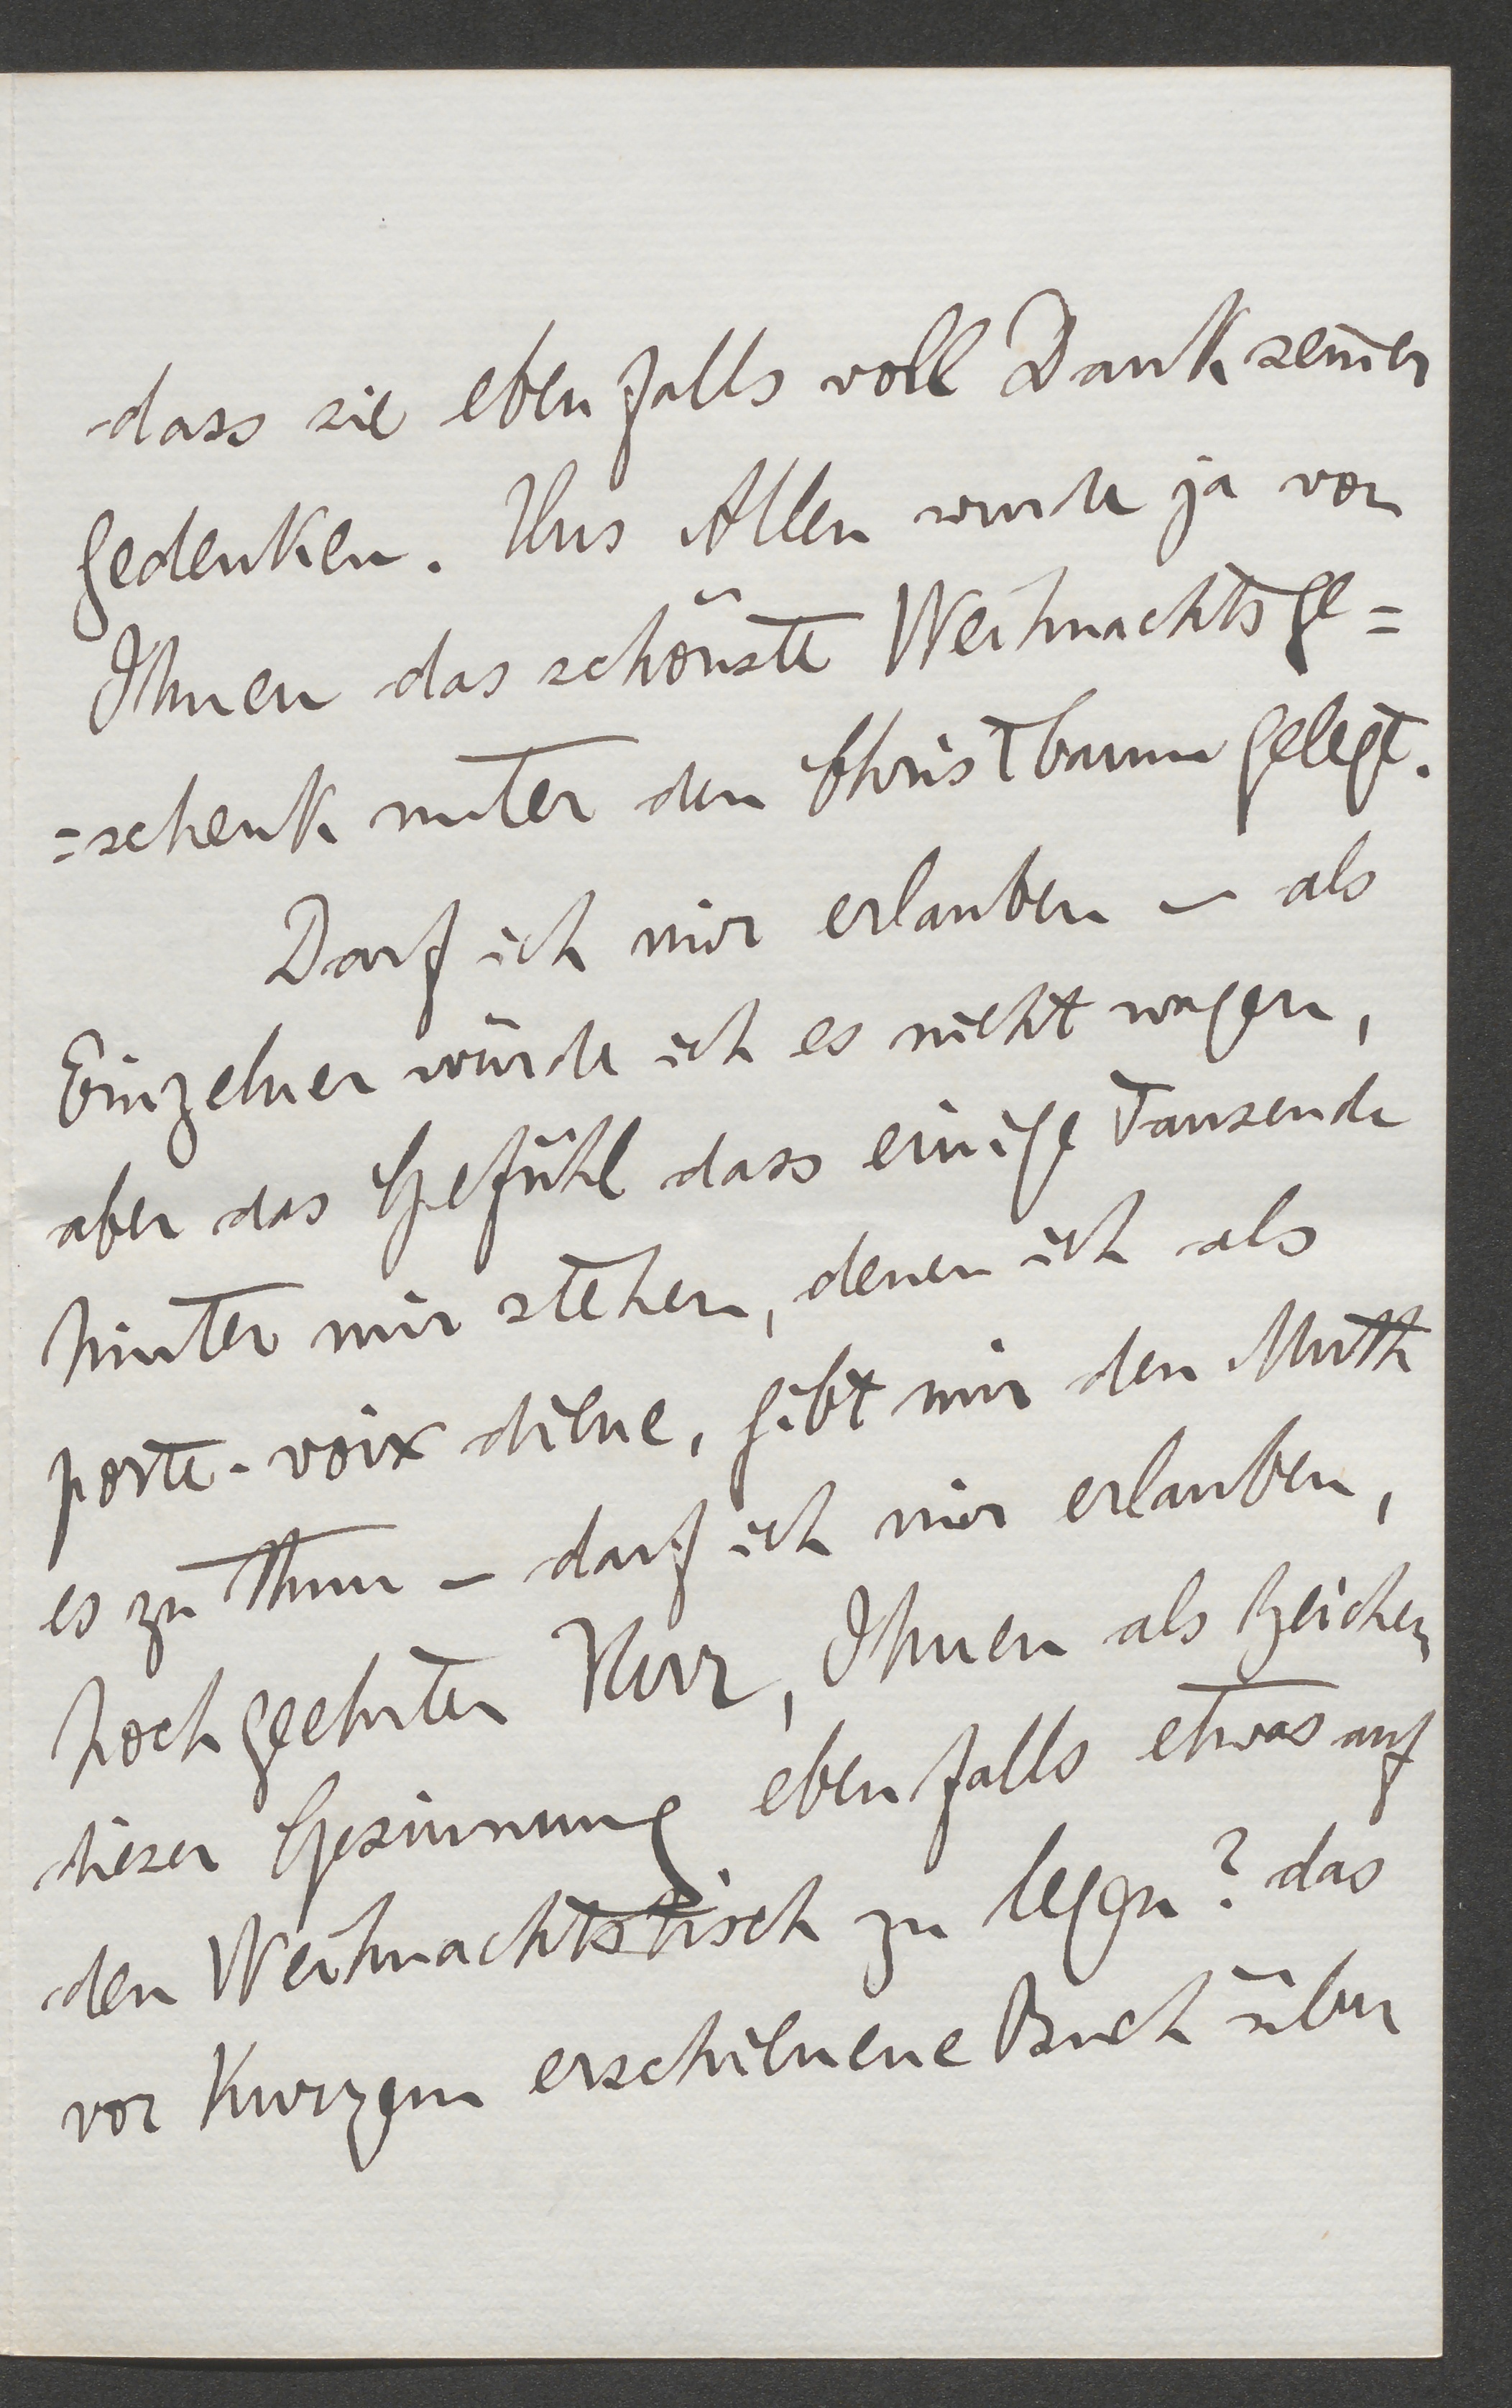 dass sie ebenfalls voll Dank seiner
gedenken. Uns Allen wurde ja von
Ihnen das schönste Weihnachtsge=
=schenk unter den Christbaum gelegt.
Darf ich mir erlauben – als
Einzelner würde ich es nicht wagen,
aber das Gefühl dass einige Tausende
hinter mir stehen, denen ich als
porte-voix diene, gibt mir den Muth
es zu thun – darf ich mir erlauben,
hochgeehrter Herr, Ihnen als Zeichen
dieser Gesinnung ebenfalls etwas auf
den Weihnachtstisch zu legen? das
vor Kurzem erschienene Buch über